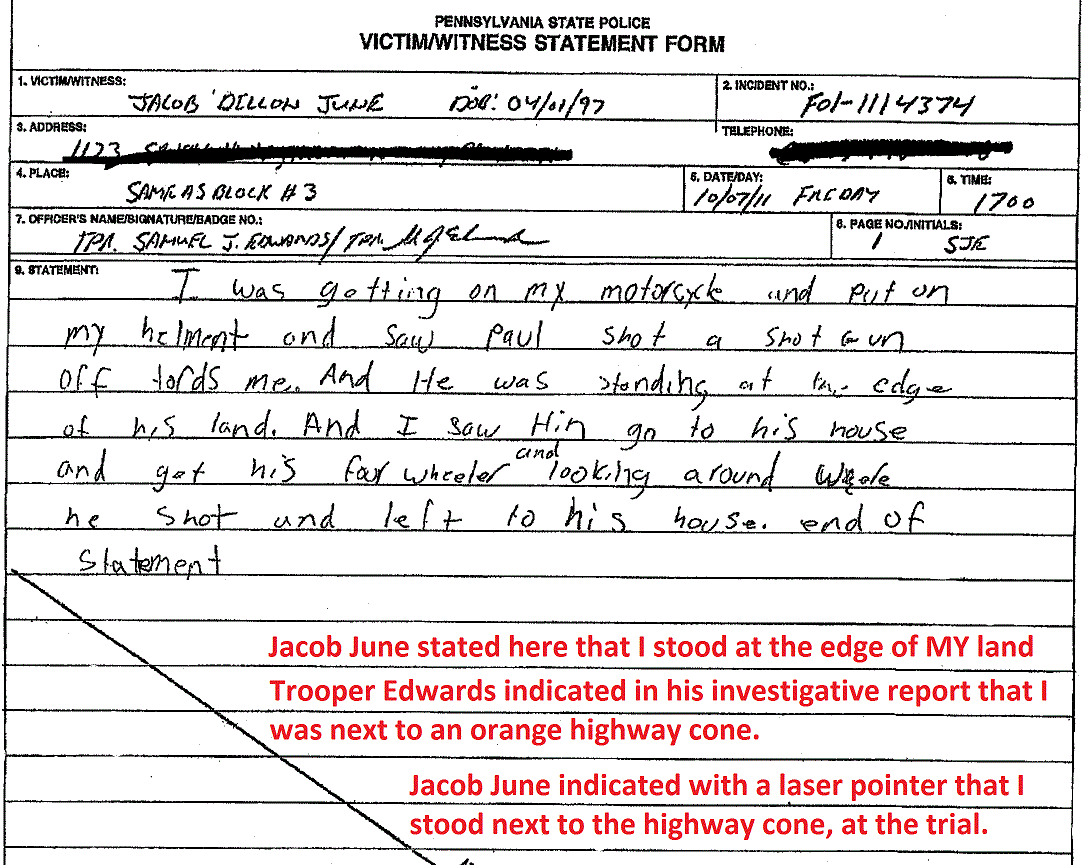 PENNSYLVANIA STATE POLICE
VICTIM/WITNESS STATEMENT FORM
1. VICTIM/WITNESS: 2. INCIDENT NO.:
JACOB DILLON JUNE DOB: 04/01/97 F01-1114374
3. ADDRESS: TELEPHONE:
1123
4. PLACE: 5. DATE/DAY: 6. TIME:
SAME AS BLOCK #3 10/07/11 FRIDAY 1700
7. OFFICER'S NAME/SIGNATURE/BADGE NO.: 8. PAGE NO./INITIALS:
TPR. SAMUEL J. EDWARDS/TPR. 1 SJE
9. STATEMENT:
I was getting on my motorcycle and put on
my helment and saw Paul shot a shot Gun
off tords me. And He was standing at the edge
of his land. And I saw Him go to his house
and get his four wheeler and looking around where
he shot and left to his house. end of
statement
Jacob June stated here that I stood at the edge of MY land
Trooper Edwards indicated in his investigative report that I
was next to an orange highway cone.
Jacob June indicated with a laser pointer that I
stood next to the highway cone, at the trial.